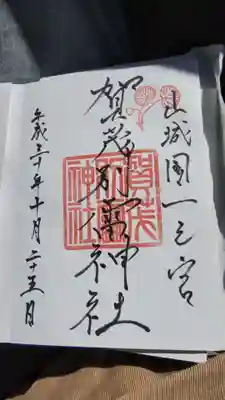 山城国一之宮
賀茂別雷神社
賀茂別雷神社
平成三十年十月二十五日